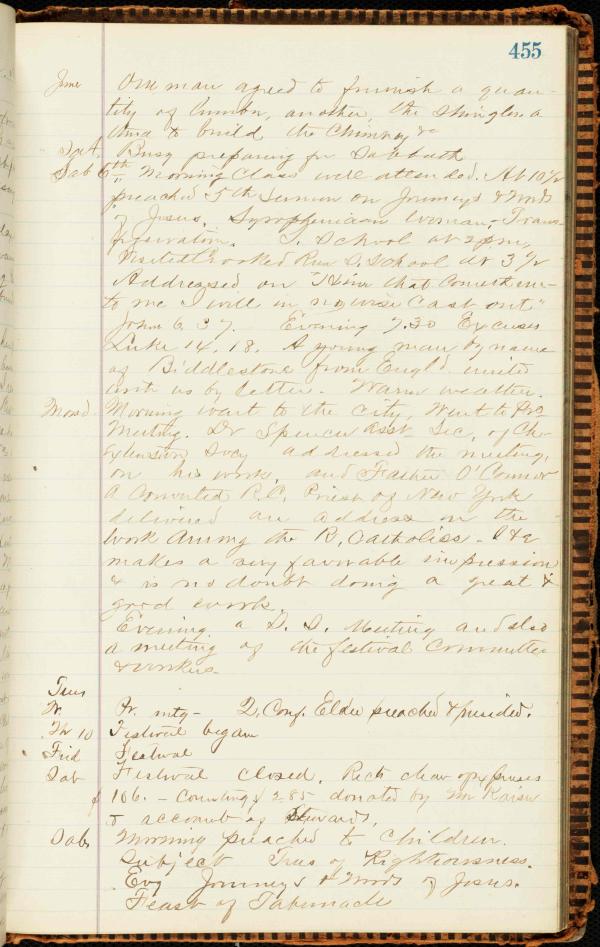 455
June One man agreed to furnish a quan-
tity of lumber, another, the Shingles. a
third to build the Chimney &c
Sat. Busy preparing for Sabbath
Sab 6th Morning Class well attended. At 10 1/2
preached 5th Sermon on Journeys & Words
of Jesus, Syrophenician Woman, - Trans-
figuration. S. School at 2 pm,
Visited Crooked Run S. School at 3 1/2
Addressed on "Him that Cometh un-
to me I will in no wise Cast out"
John 6. 37. Evening 7.30 Excuses
Luke 14. 18. A young man by name
of Biddlestone from Engld. united
with us by letter. Warm weather.
Mond. Morning went to the City, Went to Prs
Meeting. Dr Spencer Asst Sec, of Ch-
Extension Socy addressed the meeting,
on his work, and Father O'Connor
A Converted R.C. Priest of New York
delivered an address on the
work Among the R, Catholics -
makes a very favorable impression
& is no doubt doing a great &
good work.
Evening a S. S. Meeting and also
a meeting of the festival Committee
& workers.
Tues
W. Pr. mtg - Q. Conf. Elder preached & presided.
Th 10 Festival began
Frid Festival
Sab Festival closed. Rects clear of expenses
$ 106. - Counting $ 2.85 donated by Mr Kaiser
& account of Stewards,
Sab Morning preached to Children.
Subject Trees of Righteousness.
Evg Journeys & Words of Jesus.
Feast of Tabernacle